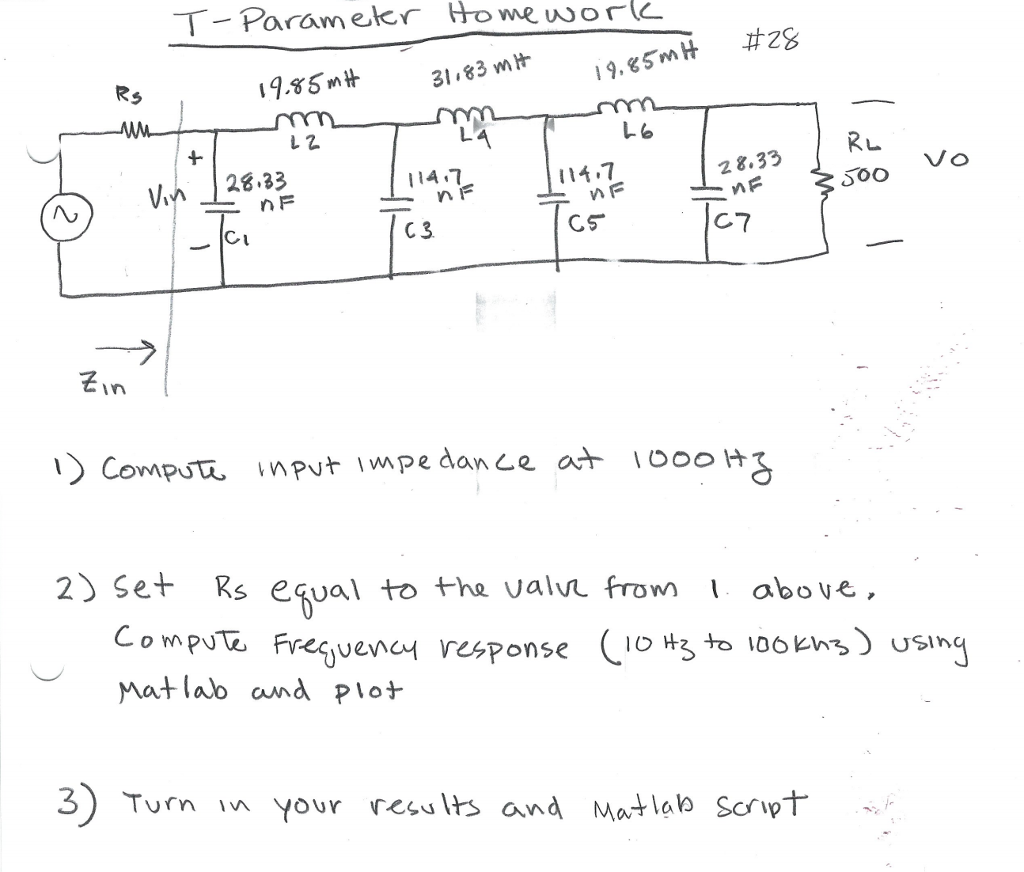 T-Parameter Homework
#28
19.85 mH
31.83 mH
19.85 mH
Rs
L2
L4
L6
+
Vin
−
28.33
nF
C1
114.7
nF
C3
114.7
nF
C5
28.33
nF
C7
RL
500
VO
Zin
1) Compute input impedance at 1000 Hz
2) Set Rs equal to the value from 1. above,
Compute Frequency response (10 Hz to 100 khz) using
Matlab and plot
3) Turn in your results and Matlab Script